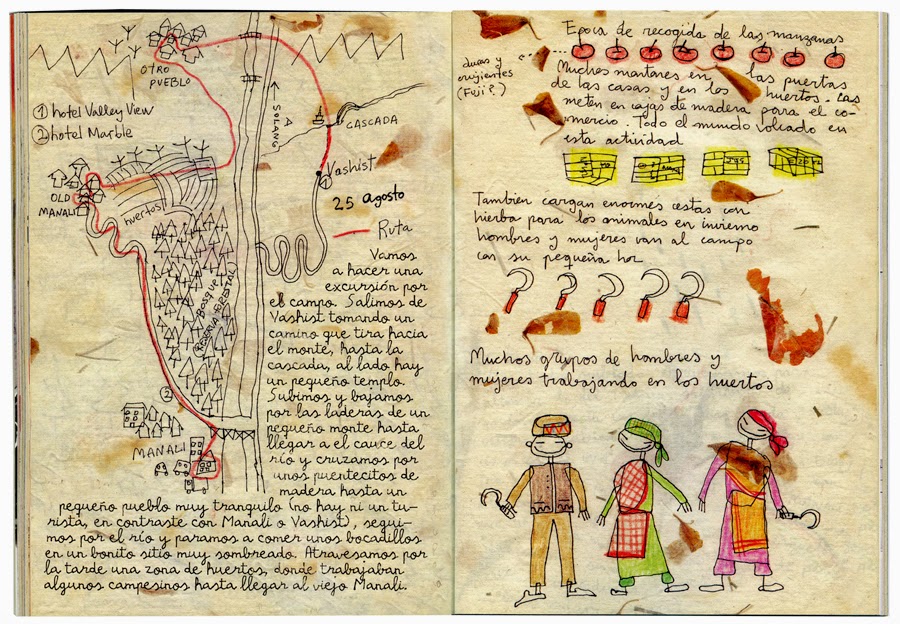 OTRO
PUEBLO
① hotel Valley View
② hotel Marble
A
SOLANG
CASCADA
Vashist
①
25 agosto
Ruta
OLD
MANALI
huertos
Bosque
RESERVA FORESTAL
②
MANALI
Vamos
a hacer una
excursión por
el campo. Salimos de
Vashist tomando un
camino que tira hacia
el monte, hasta la
cascada, al lado hay
un pequeño templo.
Subimos y bajamos
por las laderas de un
pequeño monte hasta
llegar a el cauce del
río y cruzamos por
unos puentecitos de
madera hasta un
pequeño pueblo muy tranquilo (no hay ni un tu-
rista, en contraste con Manali o Vashist), segui-
mos por el río y paramos a comer unos bocadillos
en un bonito sitio muy sombreado. Atravesamos por
la tarde una zona de huertos, donde trabajaban
algunos campesinos hasta llegar al viejo Manali.
Epoca de recogida de las manzanas
duras y
crujientes
(Fuji?)
Muchos montones en las puertas
de las casas y en los huertos. Las
meten en cajas de madera para el co-
mercio. Todo el mundo volcado en
esta actividad
Tambien cargan enormes cestas con
hierba para los animales en invierno
hombres y mujeres van al campo
con su pequeña hoz
Muchos grupos de hombres y
mujeres trabajando en los huertos